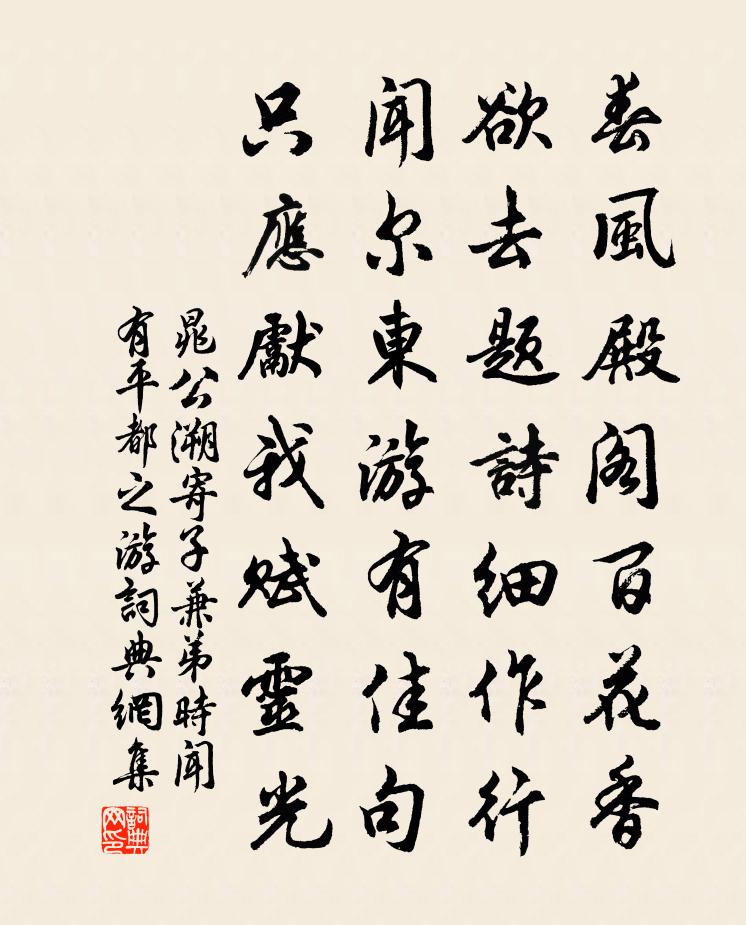 春風殿阁百花香
欲去题詩细作行
闻尔東游有佳句
只應獻我賦靈光
晁公溯寄子兼弟時闻
有平都之游詞典網集
詞典网印